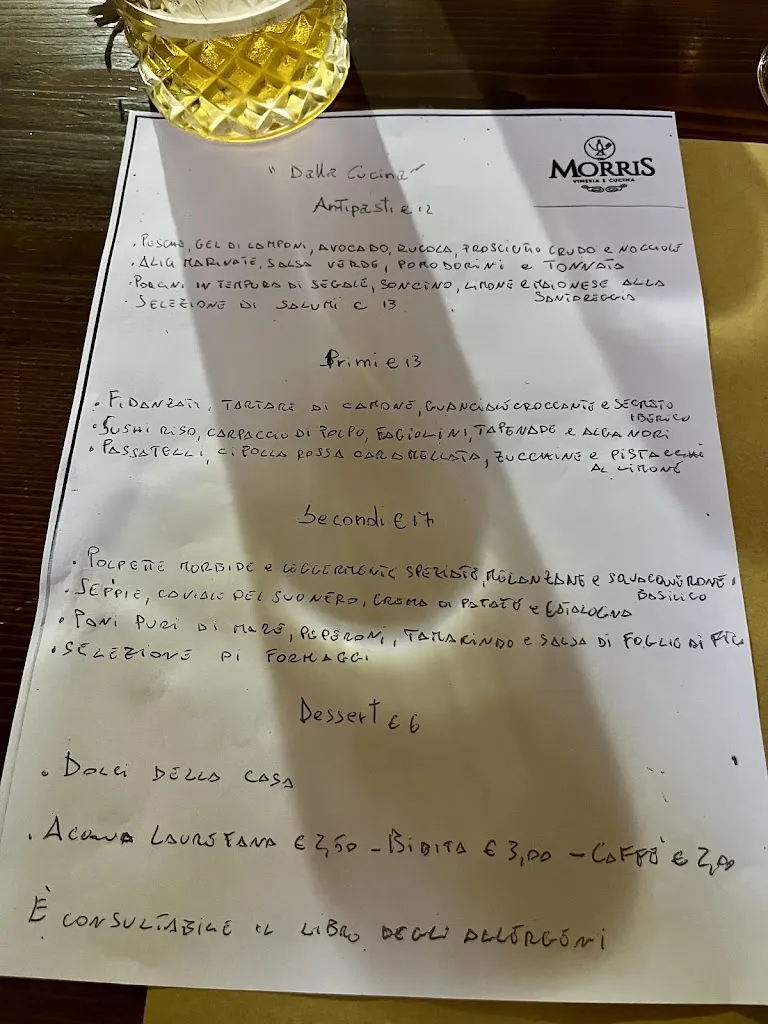 MORRIS
VINERIA E CUCINA
"Dalla Cucina"
Antipasti € 12
. PESCHE, GEL DI LAMPONI, AVOCADO, RUCOLA, PROSCIUTTO CRUDO E NOCCIOLE
. ALICI MARINATE, SALSA VERDE, POMODORINI E TONNATA
. PORCINI IN TEMPURA DI SEGALE, SONCINO, LIMONE E MAIONESE ALLA
SANTOREGGIA
. SELEZIONE DI SALUMI € 13
Primi € 13
. FIDANZATI, TARTARE DI, GUANCIALE CROCCANTE E SECRETO
IBERICO
. SUSHI RISO, CARPACCIO DI POLPO, FAGIOLINI, TAPENADE E ALGA NORI
. PASSATELLI, CIPOLLA ROSSA CARAMELLATA, ZUCCHINE E PISTACCHI
AL LIMONE
Secondi € 17
. POLPETTE MORBIDE E LEGGERMENTE SPEZIATE, MELANZANE E SQUACQUERONE,
BASILICO
. SEPPIE, CAVIALE DEL SUO NERO, CREMA DI PATATE E CATALOGNA
. PANI PURI DI MARE, PEPERONI, TAMARINDO E SALSA DI FOGLIE DI FICO
. SELEZIONE DI FORMAGGI
Dessert € 6
. DOLCI DELLA CASA
. ACQUA LAURETANA € 2,50 - BIBITA € 3,00 - CAFFÈ € 2,00
È CONSULTABILE IL LIBRO DEGLI ALLERGENI